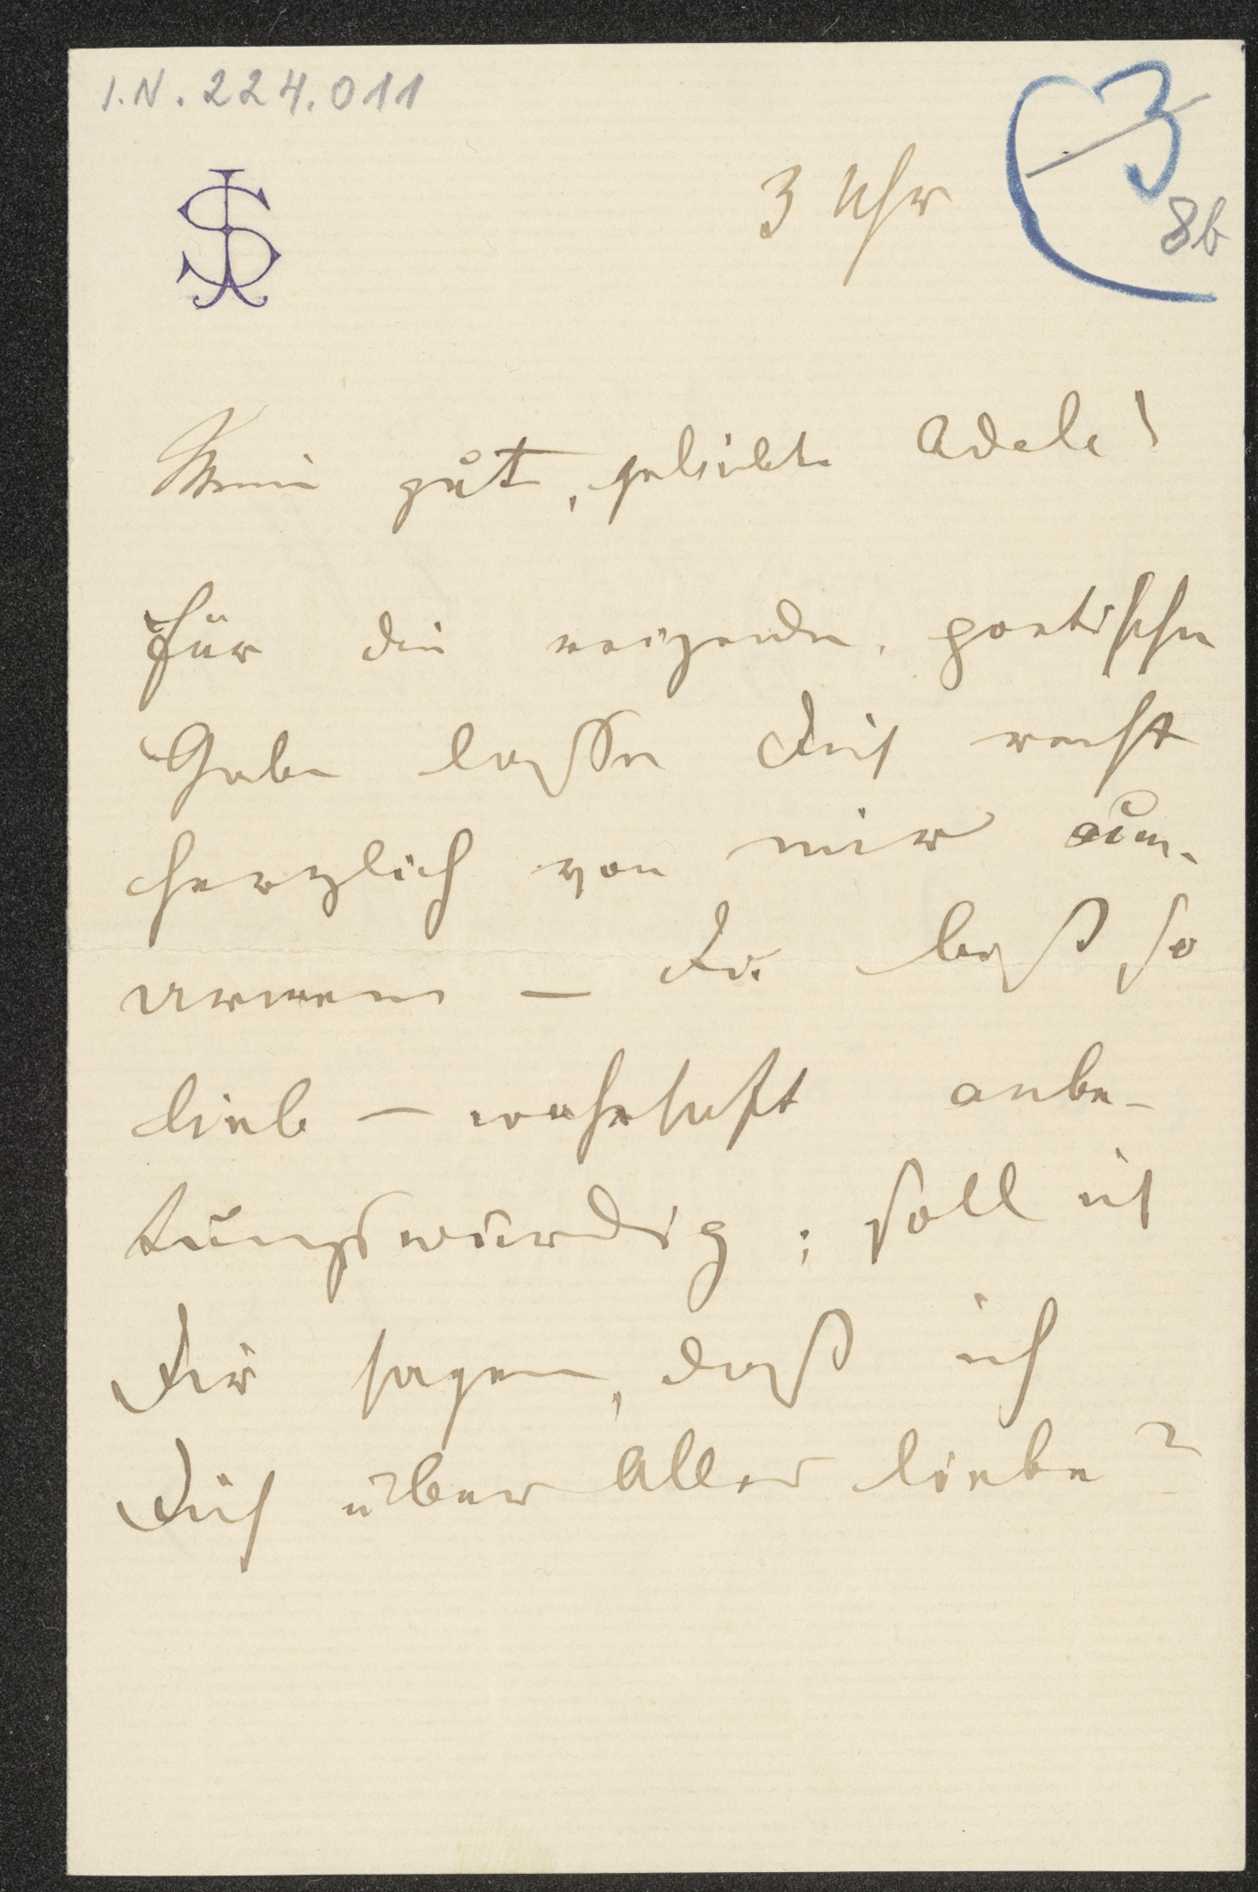 I.N. 224.011
3
8b
JS
3 Uhr
Meine gute, geliebte Adele!
für die reizende, poetische
Gabe lasse Dich recht
herzlich von mir um-
armen – Du bist so
lieb – wahrhaft anbe-
tungswürdig; soll ich
Dir sagen, daß ich
Dich über Alles liebe?